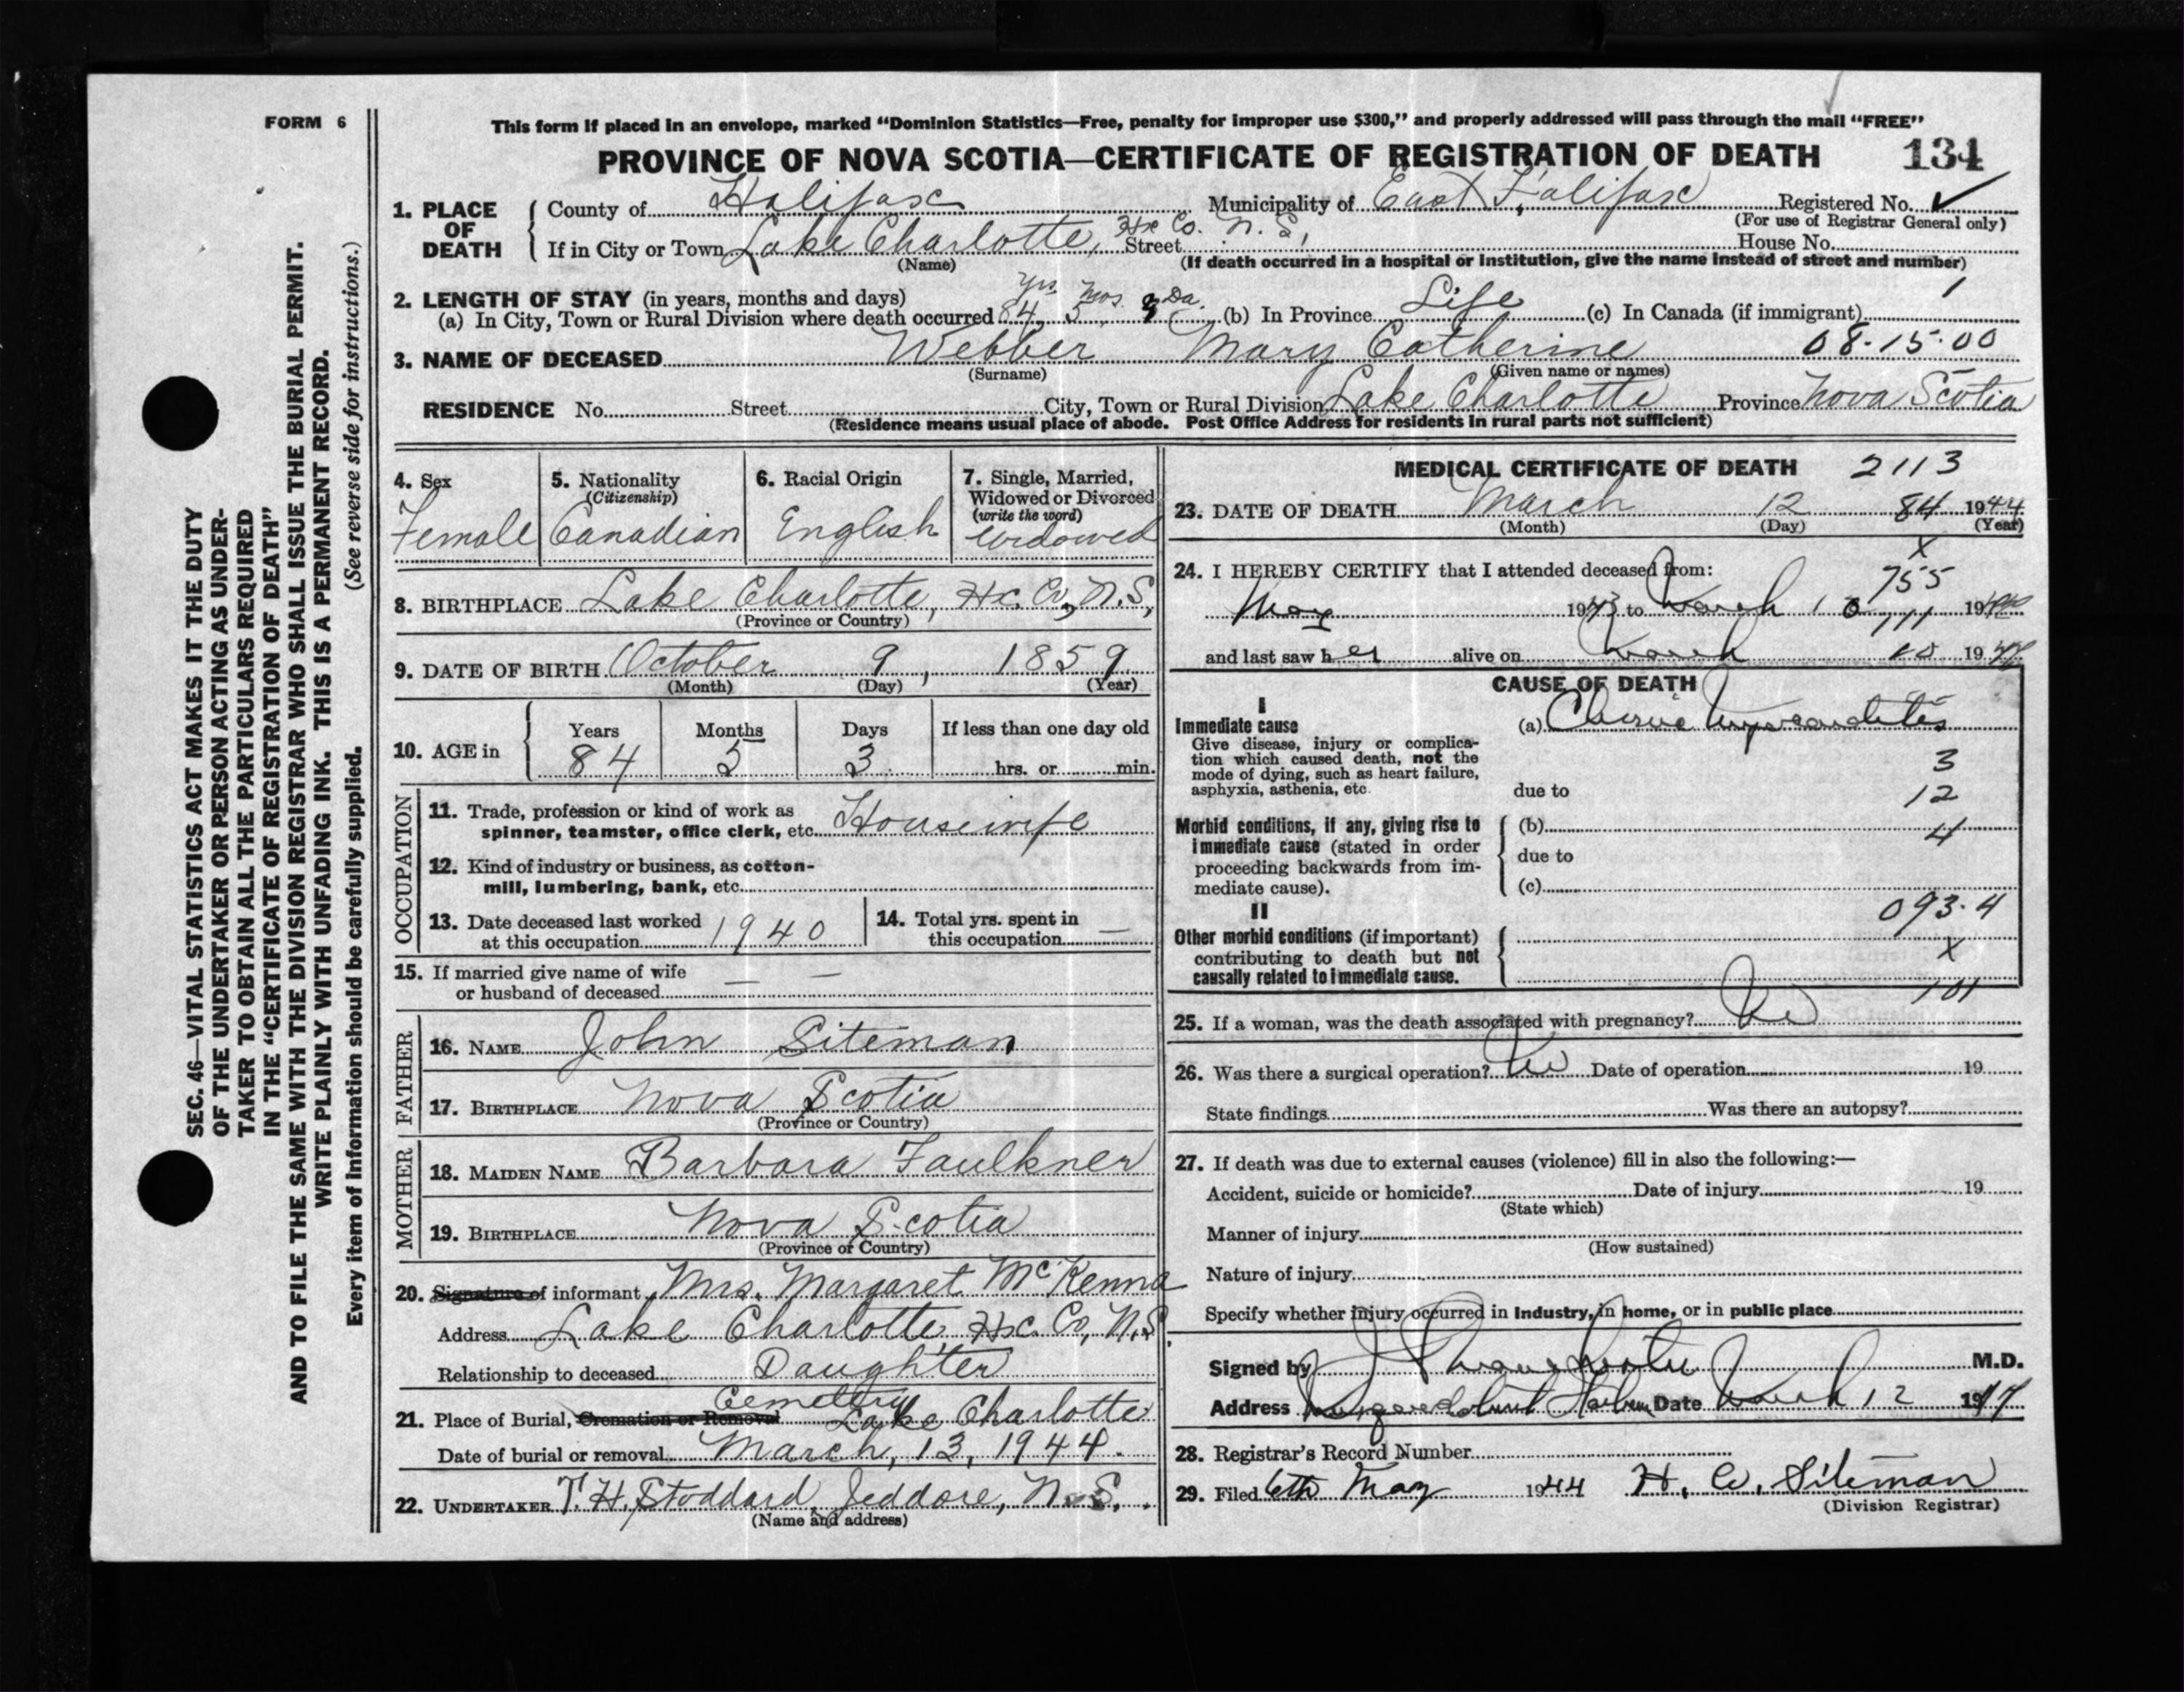 FORM 6
This form if placed in an envelope, marked “Dominion Statistics—Free, penalty for improper use $300,” and properly addressed will pass through the mail “FREE”
PROVINCE OF NOVA SCOTIA—CERTIFICATE OF REGISTRATION OF DEATH 134
SEC. 46—VITAL STATISTICS ACT MAKES IT THE DUTY
OF THE UNDERTAKER OR PERSON ACTING AS UNDER-
TAKER TO OBTAIN ALL THE PARTICULARS REQUIRED
IN THE “CERTIFICATE OF REGISTRATION OF DEATH”
AND TO FILE THE SAME WITH THE DIVISION REGISTRAR WHO SHALL ISSUE THE BURIAL PERMIT.
WRITE PLAINLY WITH UNFADING INK. THIS IS A PERMANENT RECORD.
Every item of information should be carefully supplied. (See reverse side for instructions.)
1. PLACE OF DEATH
County of Halifax Municipality of East Halifax Registered No. ✓
(For use of Registrar General only)
If in City or Town Lake Charlotte, Hx Co. N.S, Street House No.
(Name) (If death occurred in a hospital or institution, give the name instead of street and number)
2. LENGTH OF STAY (in years, months and days) Yrs Mos. Da. 1
(a) In City, Town or Rural Division where death occurred 84 5 (b) In Province Life (c) In Canada (if immigrant)
3. NAME OF DECEASED Webber Mary Catherine 08-15-00
(Surname) (Given name or names)
RESIDENCE No. Street City, Town or Rural Division Lake Charlotte Province Nova Scotia
(Residence means usual place of abode. Post Office Address for residents in rural parts not sufficient)
4. Sex
Female
5. Nationality
(Citizenship)
Canadian
6. Racial Origin
English
7. Single, Married,
Widowed or Divorced
(write the word)
Widowed
8. BIRTHPLACE Lake Charlotte, Hx. Co, N.S,
(Province or Country)
9. DATE OF BIRTH October 9, 1859
(Month) (Day) (Year)
10. AGE in Years Months Days If less than one day old
84 5 3 hrs. or min.
OCCUPATION
11. Trade, profession or kind of work as
spinner, teamster, office clerk, etc. Housewife
12. Kind of industry or business, as cotton-
mill, lumbering, bank, etc.
13. Date deceased last worked
at this occupation 1940
14. Total yrs. spent in
this occupation —
15. If married give name of wife
or husband of deceased — —
FATHER
16. NAME John Siteman
17. BIRTHPLACE Nova Scotia
(Province or Country)
MOTHER
18. MAIDEN NAME Barbara Faulkner
19. BIRTHPLACE Nova Scotia
(Province or Country)
20. Signature of informant Mrs. Margaret McKenna
Address Lake Charlotte Hx. Co, N.S.
Relationship to deceased Daughter
21. Place of Burial, Cremation or Removal Cemetery Lake Charlotte
Date of burial or removal March, 13, 1944.
22. UNDERTAKER T. H. Stoddard, Jeddore, N.S.
(Name and address)
MEDICAL CERTIFICATE OF DEATH 2113
23. DATE OF DEATH March 12 84 1944
(Month) (Day) (Year)
24. I HEREBY CERTIFY that I attended deceased from: x
755
May 1943 to March 10 111 1944
and last saw her alive on March 10 1944
CAUSE OF DEATH
I
Immediate cause (a) Chronic Myocarditis
Give disease, injury or complica-
tion which caused death, not the
mode of dying, such as heart failure,
asphyxia, asthenia, etc.
3
due to 12
Morbid conditions, if any, giving rise to
immediate cause (stated in order
proceeding backwards from im-
mediate cause).
(b) 4
due to
(c)
II 093.4
Other morbid conditions (if important)
contributing to death but not
causally related to immediate cause.
x
101
25. If a woman, was the death associated with pregnancy? No
26. Was there a surgical operation? No Date of operation 19
State findings Was there an autopsy?
27. If death was due to external causes (violence) fill in also the following:—
Accident, suicide or homicide? Date of injury 19
(State which)
Manner of injury
(How sustained)
Nature of injury
Specify whether injury occurred in industry, in home, or in public place
Signed by M.D.
Address Harbour Date March 12 1944
28. Registrar's Record Number
29. Filed 6th May 1944 H. W. Siteman
(Division Registrar)